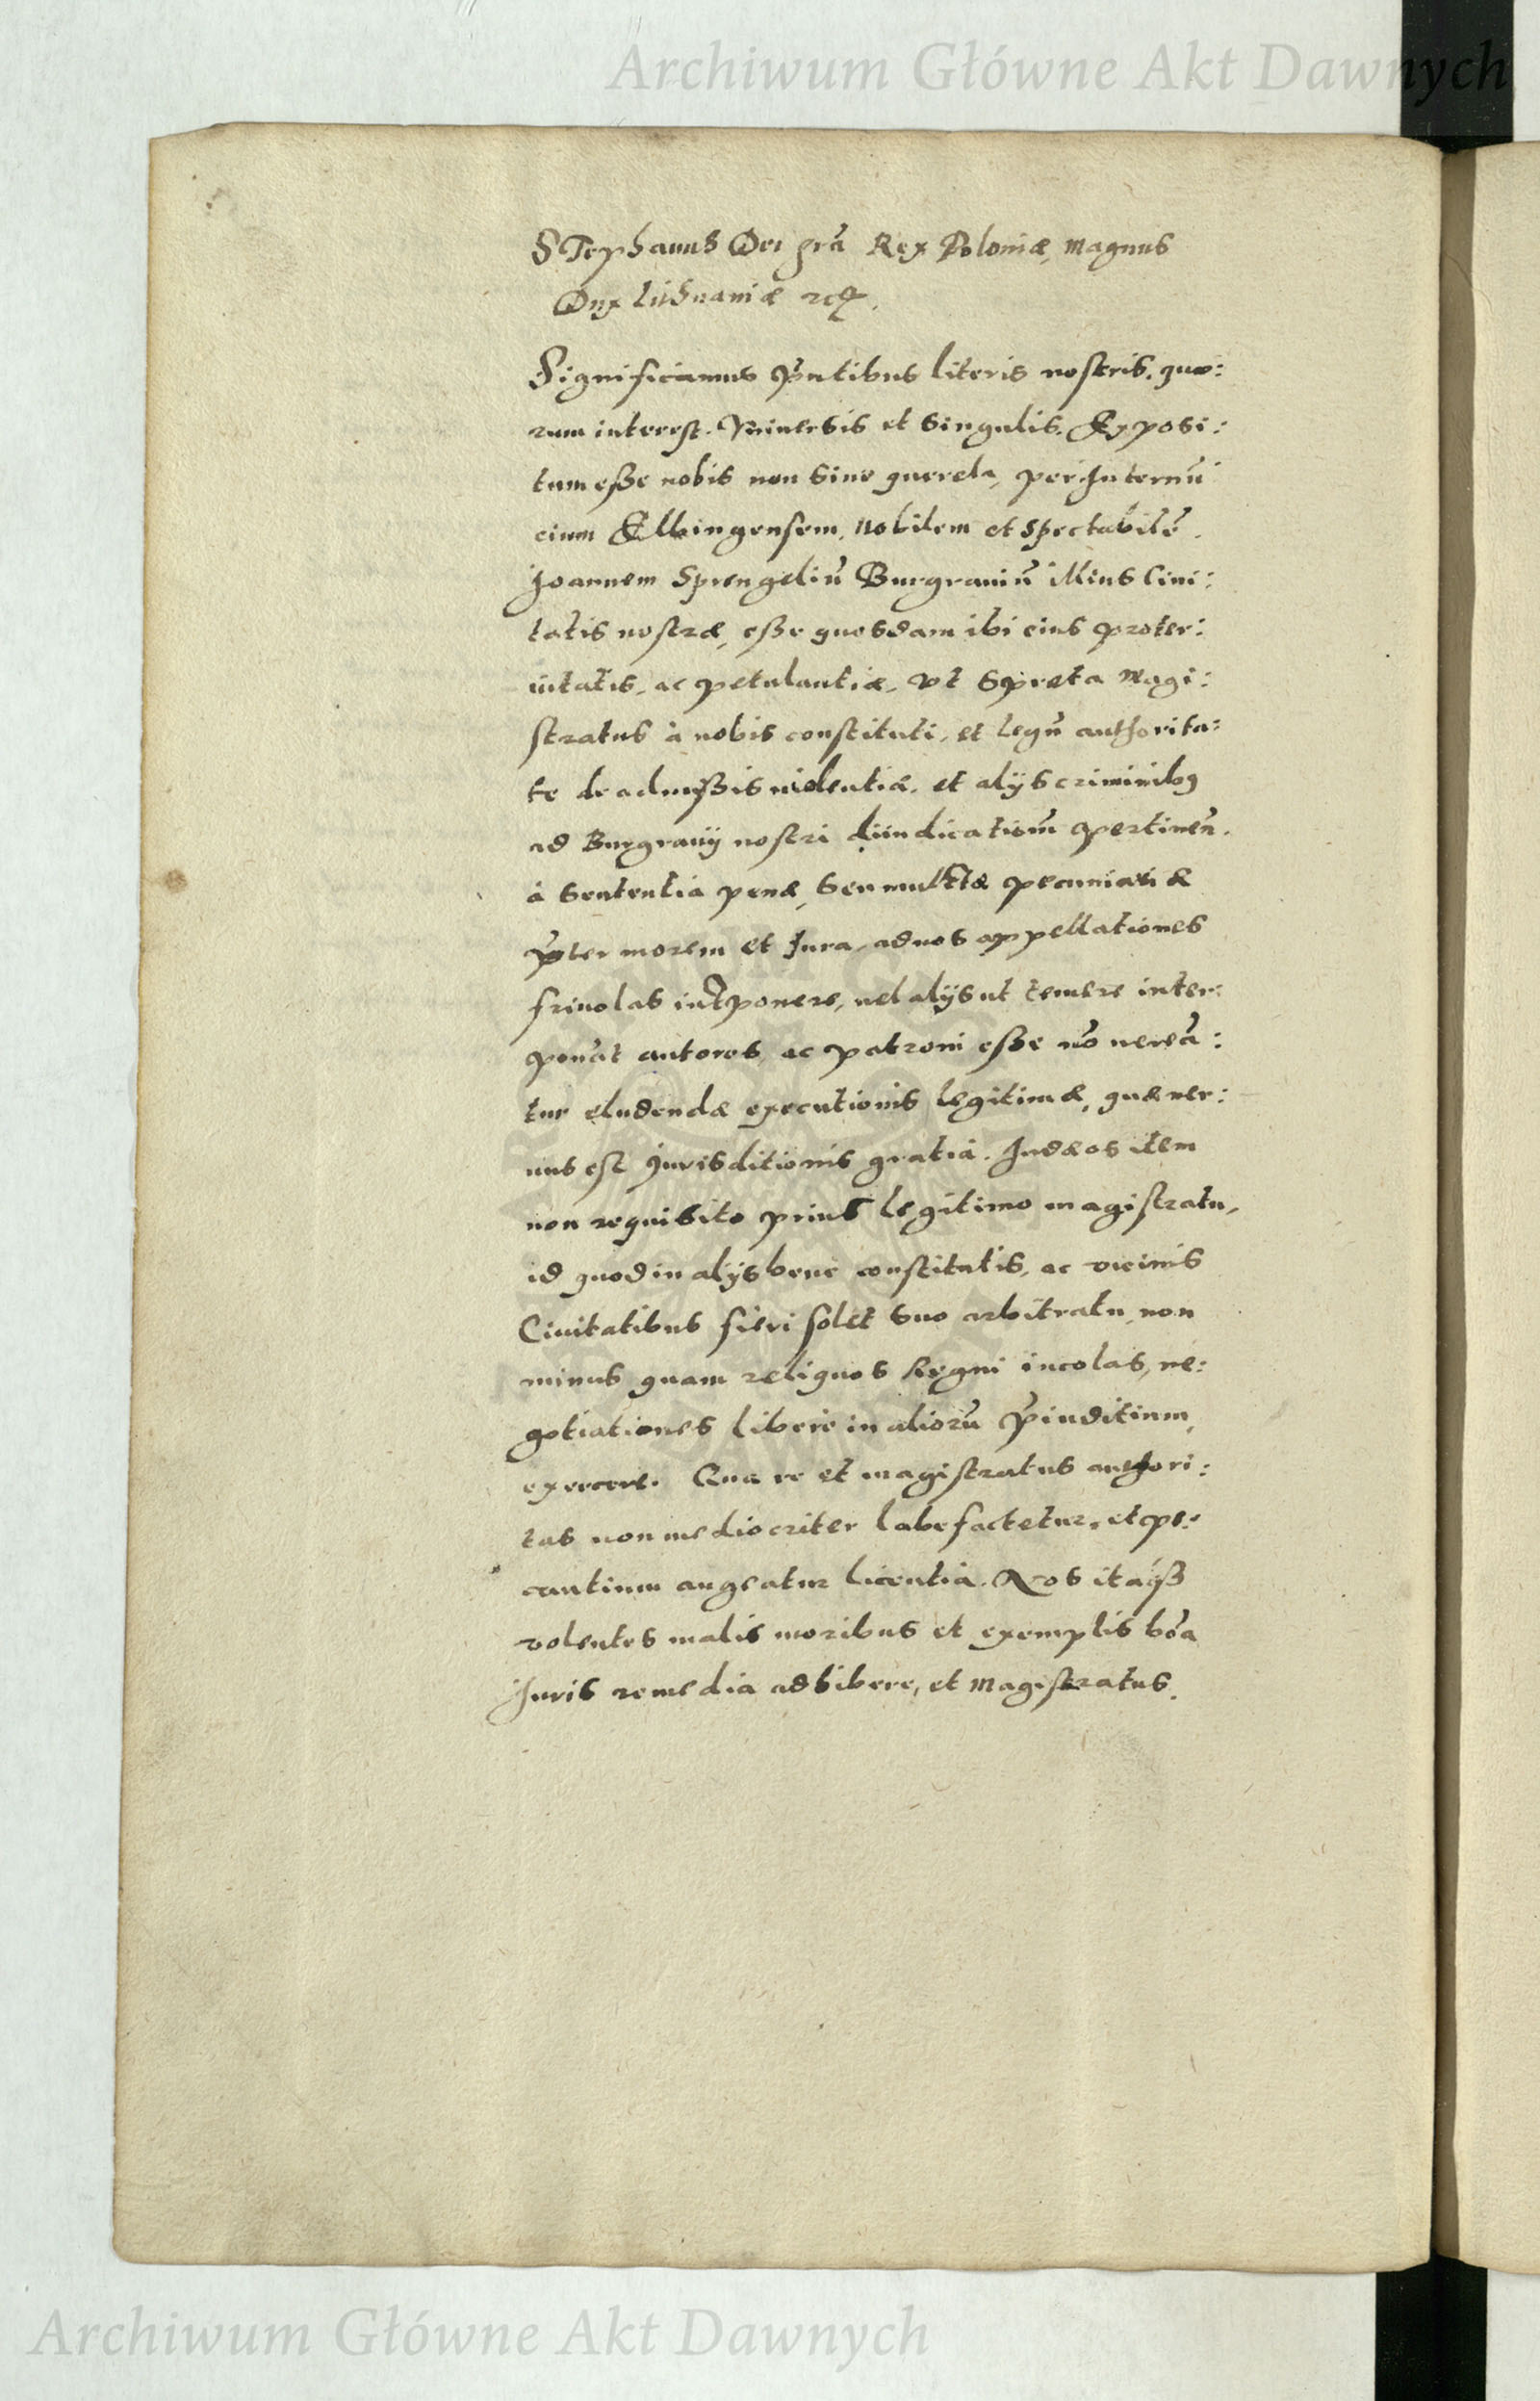 Archiwum Główne Akt Dawnych
STephanus Dei grã Rex Poloniæ, Magnus
Dux Lithuaniæ etc.
Significamus p̃ntibus literis nostris. quo:
rum interest. Vniuersis et singulis. Exposi:
tum eße nobis non sine querela, per Internũ
cium Elbingensem, Nobilem et Spectabilẽ.
Joannem Sprengeliũ Burgrauiũ illius Ciui:
tatis nostræ, eße quosdam ibi eius proter:
uitatis, ac petulantiæ, vt spreta Magi:
stratus à nobis constituti, et legũ authorita:
te de admißis uiolentiæ, et alijs criminibq
ad Burgrauij nostri diiudicationẽ pertinen̄.
à sententia penæ, seu mulctæ pecuniariæ
p̃ter morem et Jura, ad nos appellationes
friuolas interponere, uel alijs ut temere inter:
ponãt autores, ac patroni eße nõ uereã:
tur eludendæ executionis legitimæ, quæ ner:
uus est Jurisditionis gratia. Judæos item
non requisito prius legitimo magistratu,
id quod in alijs bene constitutis, ac vicinis
Ciuitatibus fieri solet suo arbitratu, non
minus quam reliquos Regni incolas, ne:
gotiationes libere in aliorũ p̃iuditium,
exercere. Qua re et magistratus authori:
tas non mediocriter labefactetur, et pe:
cantium augeatur licentia. Nos itaqȝ
volentes malis moribus et exemplis bõa
Juris remedia adhibere, et Magistratus.
Archiwum Główne Akt Dawnych